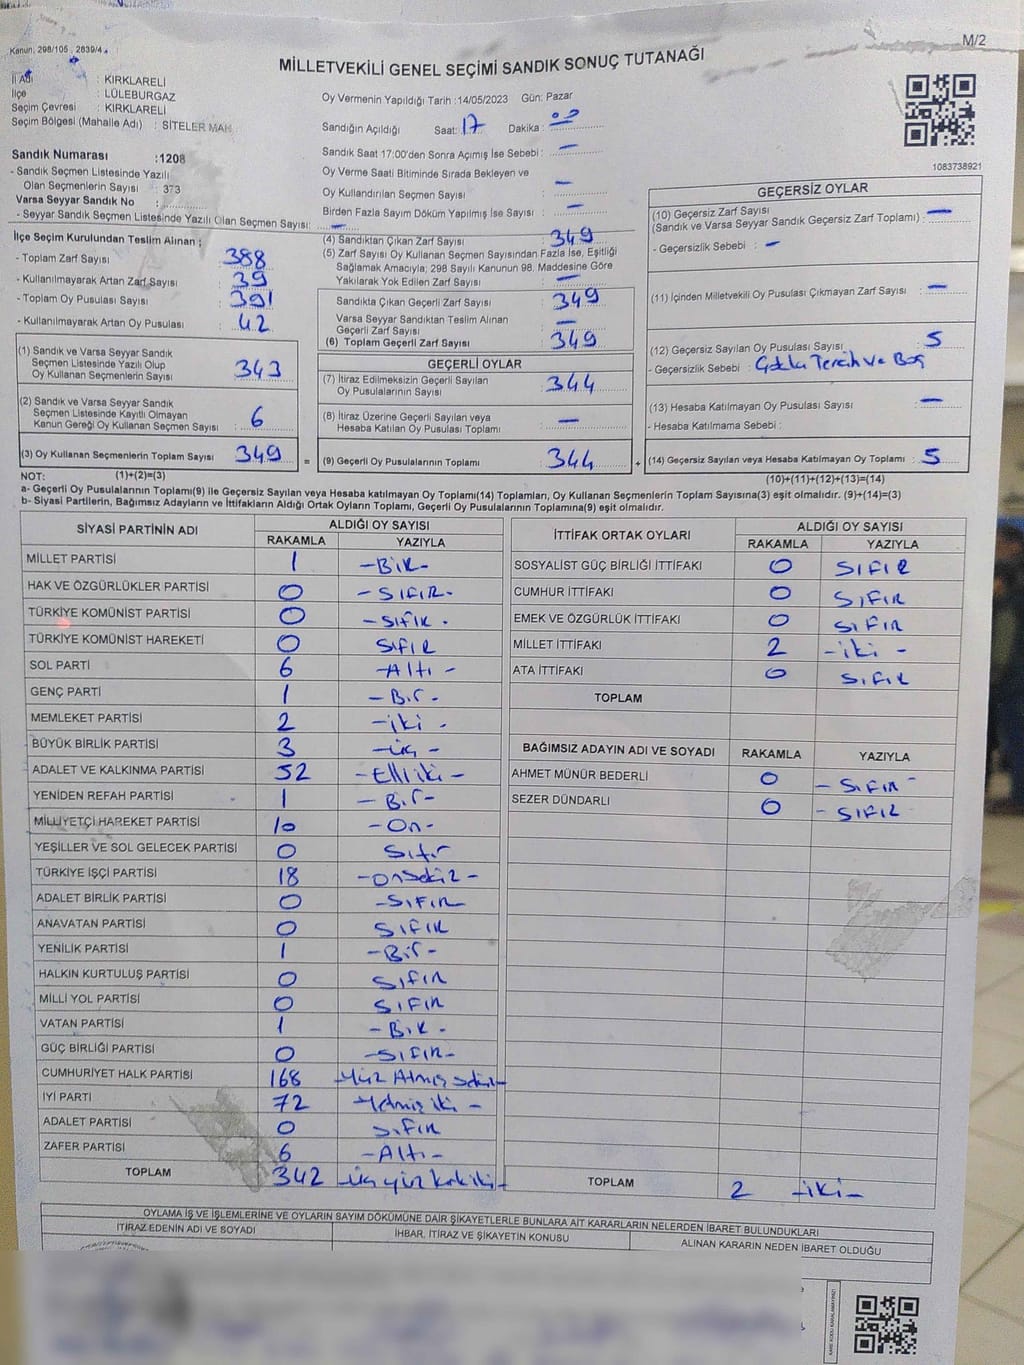 Kanun, 298/105 , 2839/4
M/2
MİLLETVEKİLİ GENEL SEÇİMİ SANDIK SONUÇ TUTANAĞI
İl Adı : KIRKLARELİ
İlçe : LÜLEBURGAZ
Seçim Çevresi : KIRKLARELİ
Seçim Bölgesi (Mahalle Adı) : SİTELER MAH
Oy Vermenin Yapıldığı Tarih :14/05/2023 Gün: Pazar
Sandığın Açıldığı Saat: 17 Dakika : 00
Sandık Saat 17:00'den Sonra Açımış İse Sebebi : –
Oy Verme Saati Bitiminde Sırada Bekleyen ve
Oy Kullandırılan Seçmen Sayısı : –
Birden Fazla Sayım Döküm Yapılmış İse Sayısı : –
1083738921
Sandık Numarası :1208
- Sandık Seçmen Listesinde Yazılı
Olan Seçmenlerin Sayısı : 373
Varsa Seyyar Sandık No :
- Seyyar Sandık Seçmen Listesinde Yazılı Olan Seçmen Sayısı: –
İlçe Seçim Kurulundan Teslim Alınan ;
- Toplam Zarf Sayısı : 388
- Kullanılmayarak Artan Zarf Sayısı : 39
- Toplam Oy Pusulası Sayısı : 391
- Kullanılmayarak Artan Oy Pusulası : 42
(1) Sandık ve Varsa Seyyar Sandık
Seçmen Listesinde Yazılı Olup
Oy Kullanan Seçmenlerin Sayısı : 343
(2) Sandık ve Varsa Seyyar Sandık
Seçmen Listesinde Kayıtlı Olmayan
Kanun Gereği Oy Kullanan Seçmen Sayısı : 6
(3) Oy Kullanan Seçmenlerin Toplam Sayısı : 349
(4) Sandıktan Çıkan Zarf Sayısı : 349
(5) Zarf Sayısı Oy Kullanan Seçmen Sayısından Fazla İse, Eşitliği
Sağlamak Amacıyla; 298 Sayılı Kanunun 98. Maddesine Göre
Yakılarak Yok Edilen Zarf Sayısı : –
Sandıkta Çıkan Geçerli Zarf Sayısı : 349
Varsa Seyyar Sandıktan Teslim Alınan
Geçerli Zarf Sayısı : –
(6) Toplam Geçerli Zarf Sayısı : 349
GEÇERLİ OYLAR
(7) İtiraz Edilmeksizin Geçerli Sayılan
Oy Pusulalarının Sayısı : 344
(8) İtiraz Üzerine Geçerli Sayılan veya
Hesaba Katılan Oy Pusulası Toplamı : –
= (9) Geçerli Oy Pusulalarının Toplamı : 344
GEÇERSİZ OYLAR
(10) Geçersiz Zarf Sayısı
(Sandık ve Varsa Seyyar Sandık Geçersiz Zarf Toplamı) : –
- Geçersizlik Sebebi : –
(11) İçinden Milletvekili Oy Pusulası Çıkmayan Zarf Sayısı : –
(12) Geçersiz Sayılan Oy Pusulası Sayısı : 5
- Geçersizlik Sebebi : Çoklu Tercih ve Boş
(13) Hesaba Katılmayan Oy Pusulası Sayısı : –
- Hesaba Katılmama Sebebi :
+ (14) Geçersiz Sayılan veya Hesaba Katılmayan Oy Toplamı : 5
NOT: (1)+(2)=(3)
(10)+(11)+(12)+(13)=(14)
a- Geçerli Oy Pusulalarının Toplamı(9) ile Geçersiz Sayılan veya Hesaba katılmayan Oy Toplamı(14) Toplamları, Oy Kullanan Seçmenlerin Toplam Sayısına(3) eşit olmalıdır. (9)+(14)=(3)
b- Siyasi Partilerin, Bağımsız Adayların ve İttifakların Aldığı Ortak Oyların Toplamı, Geçerli Oy Pusulalarının Toplamına(9) eşit olmalıdır.
SİYASİ PARTİNİN ADI ALDIĞI OY SAYISI
RAKAMLA YAZIYLA
MİLLET PARTİSİ 1 –Bir–
HAK VE ÖZGÜRLÜKLER PARTİSİ 0 –SIFIR–
TÜRKİYE KOMÜNİST PARTİSİ 0 –SIFIR–
TÜRKİYE KOMÜNİST HAREKETİ 0 SIFIR
SOL PARTİ 6 –Altı–
GENÇ PARTİ 1 –Bir–
MEMLEKET PARTİSİ 2 –iki–
BÜYÜK BİRLİK PARTİSİ 3 –üç–
ADALET VE KALKINMA PARTİSİ 52 –Elliiki–
YENİDEN REFAH PARTİSİ 1 –Bir–
MİLLİYETÇİ HAREKET PARTİSİ 10 –On–
YEŞİLLER VE SOL GELECEK PARTİSİ 0 Sıfır
TÜRKİYE İŞÇİ PARTİSİ 18 –onsekiz–
ADALET BİRLİK PARTİSİ 0 –SIFIR–
ANAVATAN PARTİSİ 0 SIFIR
YENİLİK PARTİSİ 1 –Bir–
HALKIN KURTULUŞ PARTİSİ 0 SIFIR
MİLLİ YOL PARTİSİ 0 SIFIR
VATAN PARTİSİ 1 –Bir–
GÜÇ BİRLİĞİ PARTİSİ 0 –SIFIR–
CUMHURİYET HALK PARTİSİ 168 –Yüz Atmış sekiz–
İYİ PARTİ 72 –Yetmiş iki–
ADALET PARTİSİ 0 SIFIR
ZAFER PARTİSİ 6 –Altı–
TOPLAM 342 –üç yüz kırk iki–
İTTİFAK ORTAK OYLARI ALDIĞI OY SAYISI
RAKAMLA YAZIYLA
SOSYALİST GÜÇ BİRLİĞİ İTTİFAKI 0 SIFIR
CUMHUR İTTİFAKI 0 SIFIR
EMEK VE ÖZGÜRLÜK İTTİFAKI 0 SIFIR
MİLLET İTTİFAKI 2 –iki–
ATA İTTİFAKI 0 SIFIR
TOPLAM
BAĞIMSIZ ADAYIN ADI VE SOYADI RAKAMLA YAZIYLA
AHMET MÜNÜR BEDERLİ 0 –SIFIR–
SEZER DÜNDARLI 0 –SIFIR
TOPLAM 2 –iki–
OYLAMA İŞ VE İŞLEMLERİNE VE OYLARIN SAYIM DÖKÜMÜNE DAİR ŞİKAYETLERLE BUNLARA AİT KARARLARIN NELERDEN İBARET BULUNDUKLARI
İTİRAZ EDENİN ADI VE SOYADI İHBAR, İTİRAZ VE ŞİKAYETİN KONUSU ALINAN KARARIN NEDEN İBARET OLDUĞU